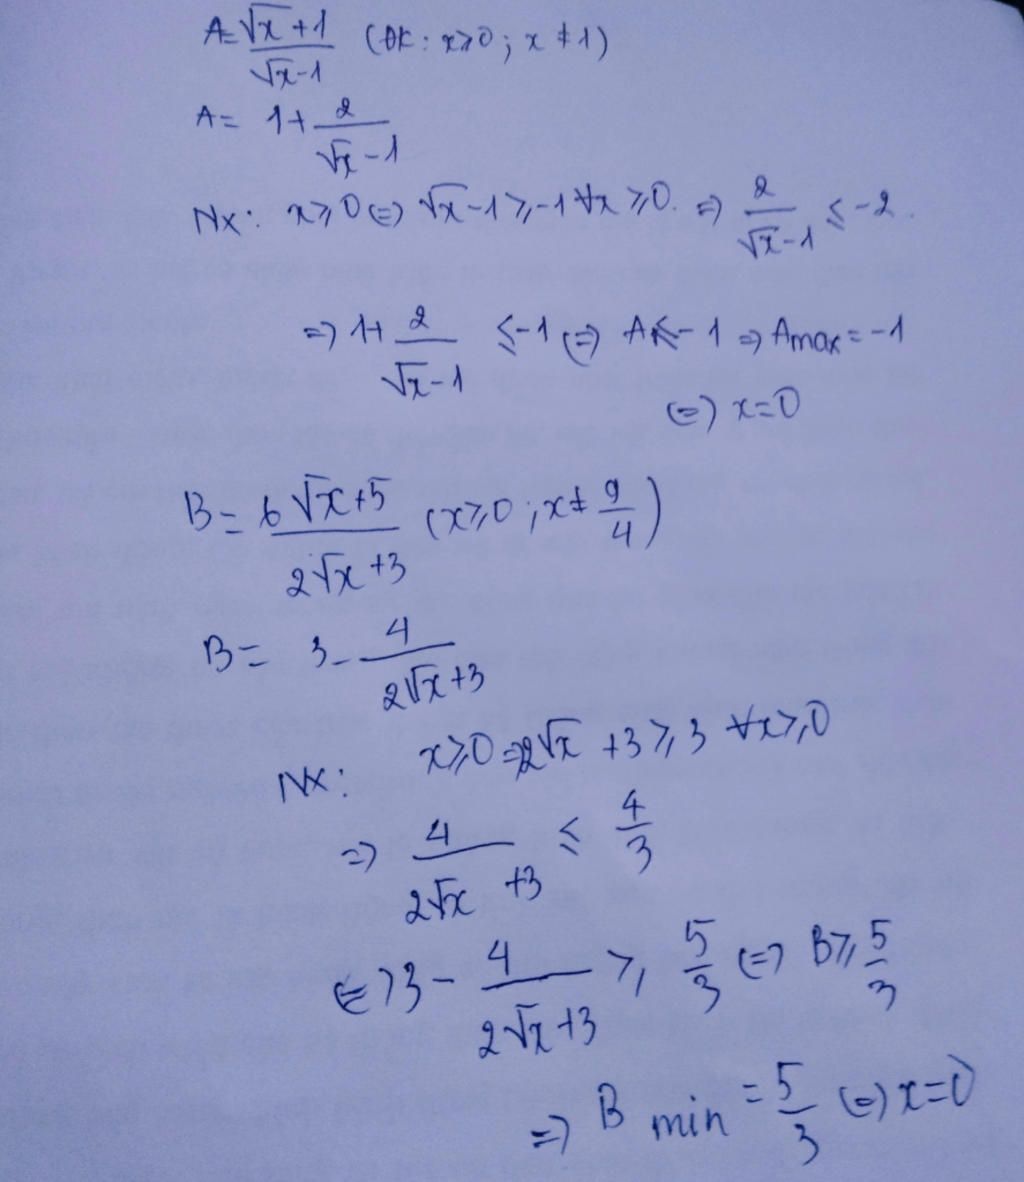 A = (√x + 1)/(√x - 1) (ĐK: x ≥ 0; x ≠ 1)
A = 1 + 2/(√x - 1)
NX: x ≥ 0 ⇔ √x - 1 ≥ -1 ∀x ≥ 0. ⇒ 2/(√x - 1) ≤ -2.
⇒ 1 + 2/(√x - 1) ≤ -1 ⇔ A ≤ -1 ⇒ Amax = -1
⇔ x = 0
B = (6√x + 5)/(2√x + 3) (x ≥ 0; x ≠ 9/4)
B = 3 - 4/(2√x + 3)
NX: x ≥ 0 ⇒ 2√x + 3 ≥ 3 ∀x ≥ 0
⇒ 4/(2√x + 3) ≤ 4/3
⇔ 3 - 4/(2√x + 3) ≥ 5/3 ⇔ B ≥ 5/3
⇒ B min = 5/3 ⇔ x = 0